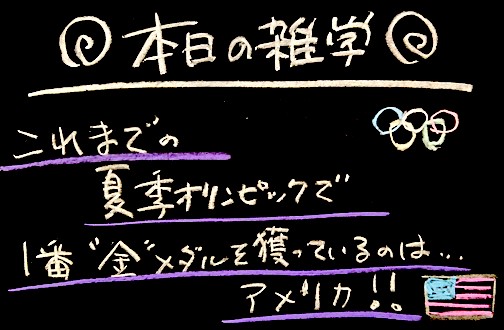 本日の雑学
これまでの
夏季オリンピックで
1番"金"メダルを獲っているのは...
アメリカ!!